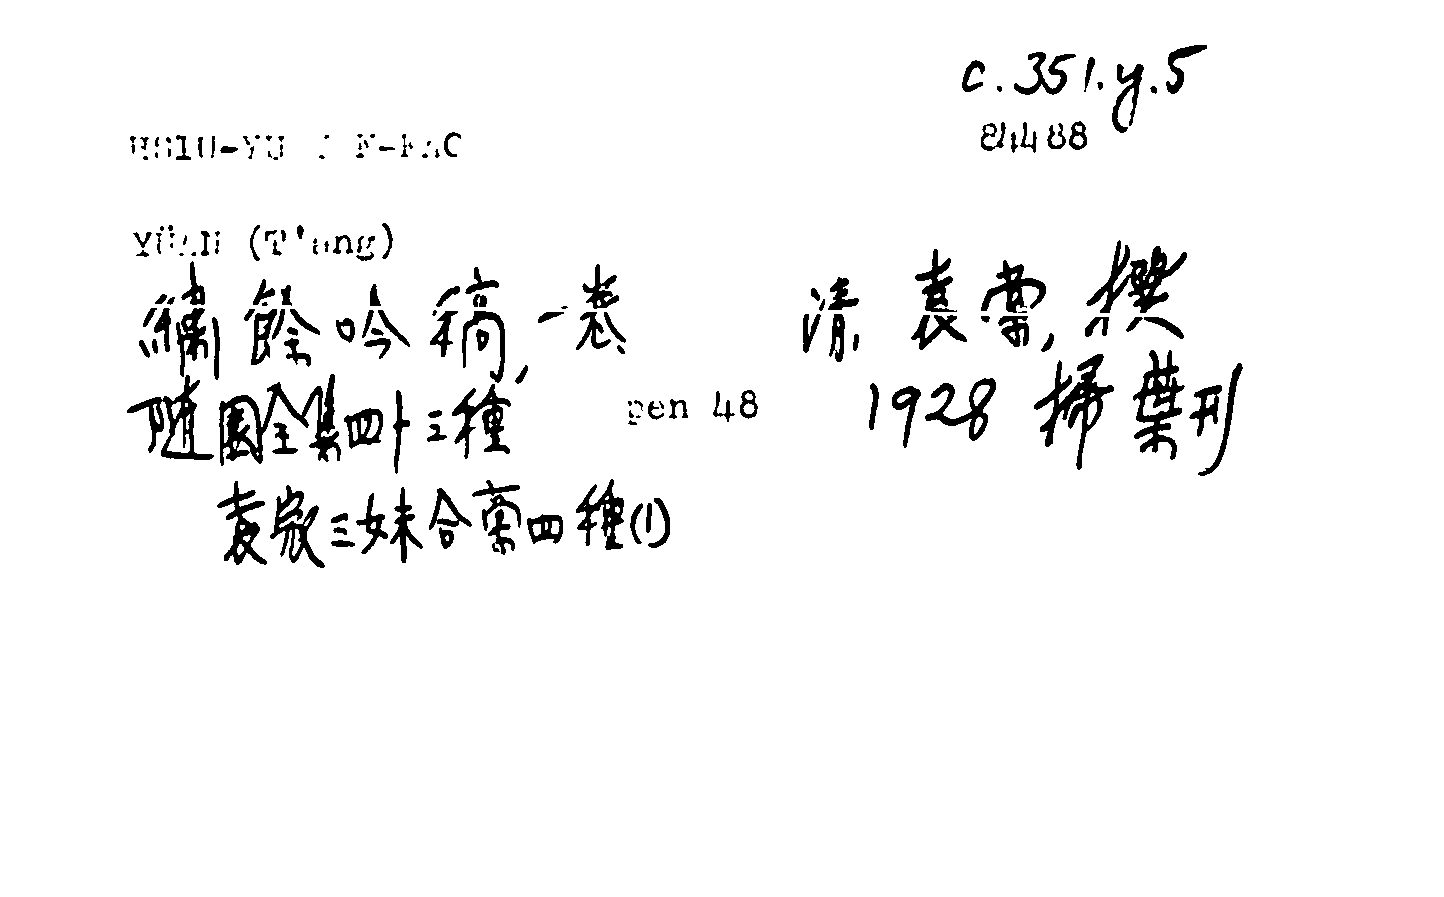 c.351.y.5
84488
HSIU-YU
YÜAN (T'ang)
繡餘吟稿,一卷 清,袁棠,撰
隨園全集四十三種, pen 48 1928 掃葉刊
袁家三妹合稾四種(1)